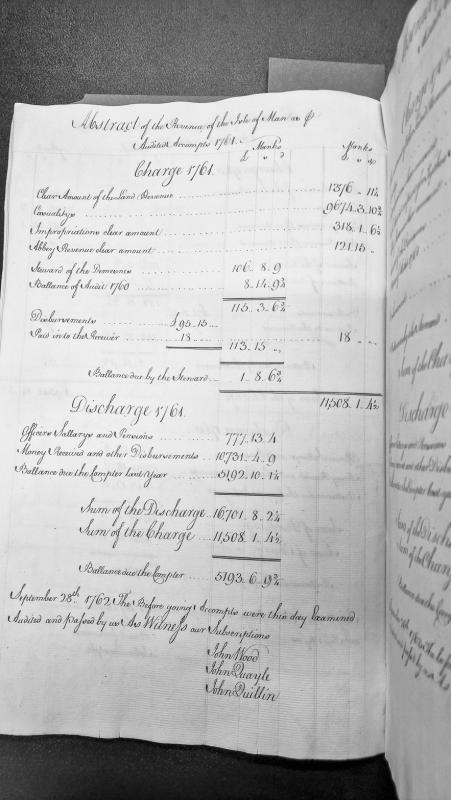 Abstract of the Revenue of the Isle of Man as ⅌
Audited Accompts 1761.
Manks Manks
£ s d £ s d
Charge 1761.
Clear Amount of the Land Revenue 1376 .. 11¼
Casualtys 9674..3..10¾
Impropriations clear amount 318..1..6½
Abbey Revenue clear amount 121..15 ..
Steward of the Demesnes 106..8..9
Ballance of Audit 1760 8..14..9¾
115..3..6¾
Disbursements £95..15 ..
Paid into the Receiver 18 .. 113..15 .. 18 ..
Ballance due by the Steward 1..8..6¾
11,508..1..4½
Discharge 1761.
Officers Sallarys and Pensions 777..13..4
Money Received and other Disbursements 10731..4..9
Ballance due the Compter last Year 5192..10..1¼
Sum of the Discharge 16,701..8..2¼
Sum of the Charge 11,508..1..4½
Ballance due the Compter 5193..6..9¾
September 28th 1762 The Before going Accompts were this day Examined
Audited and passed by us As Witness our Subscriptions
John Wood
John Quayle
John Quillin